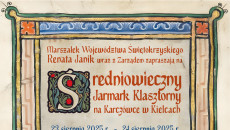 Marszałek Województwa Świętokrzyskiego
Renata Janik wraz z Zarządem zapraszają na
Średniowieczny
Jarmark Klasztorny
na Karczówce w Kielcach
23 sierpnia 2025 r. – 24 sierpnia 2025 r.